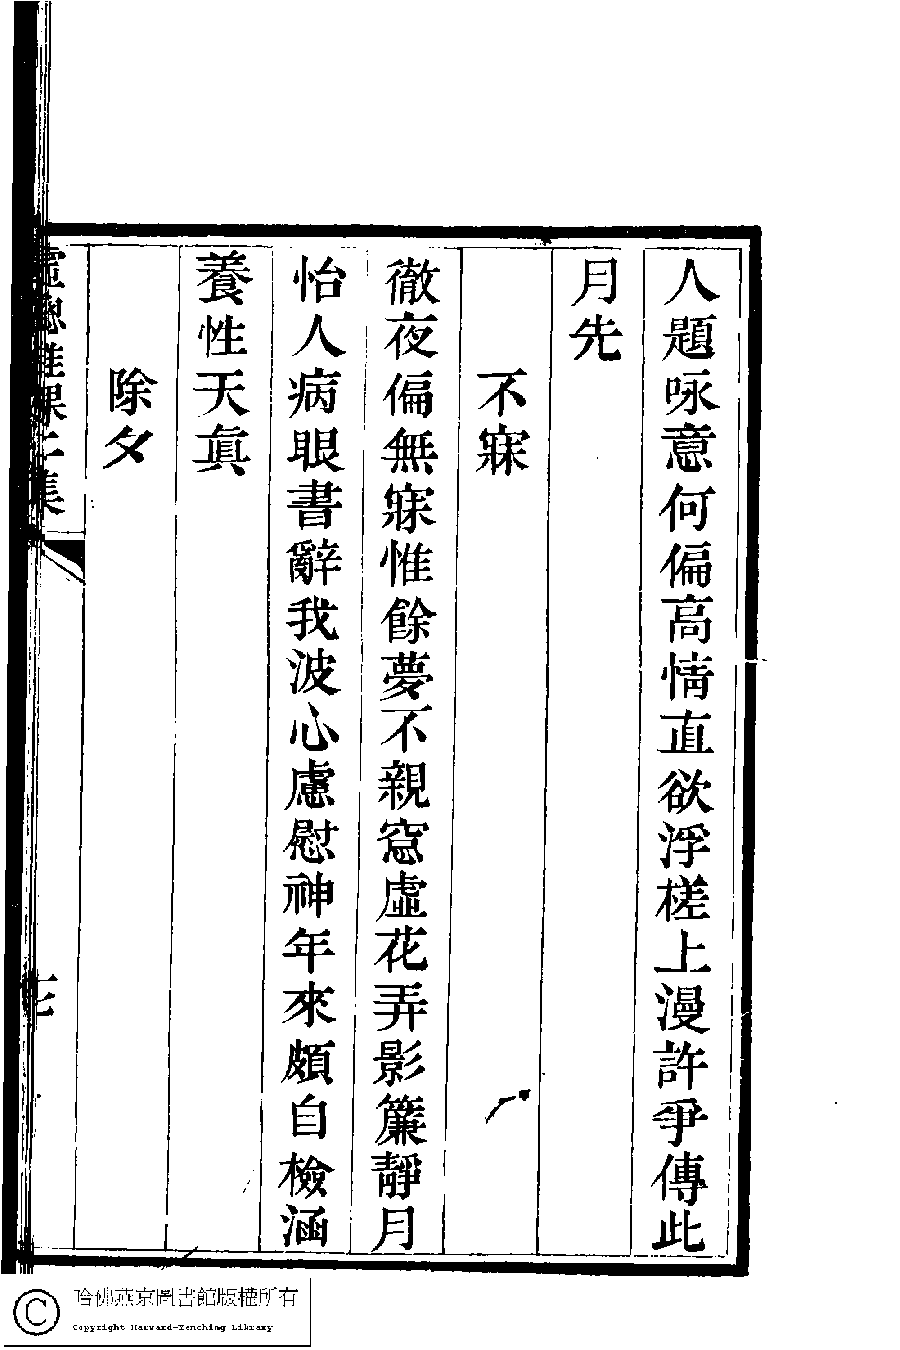 人題咏意何偏高情直欲浮槎上漫許爭傳此
月先
不寐
徹夜偏無寐惟餘夢不親窓虛花弄影簾靜月
怡人病眼書辭我波心慮慰神年來頗自檢涵
養性天眞
除夕
課二集
哈佛燕京圖書館版權所有
Copyright Harvard-Yenching Library